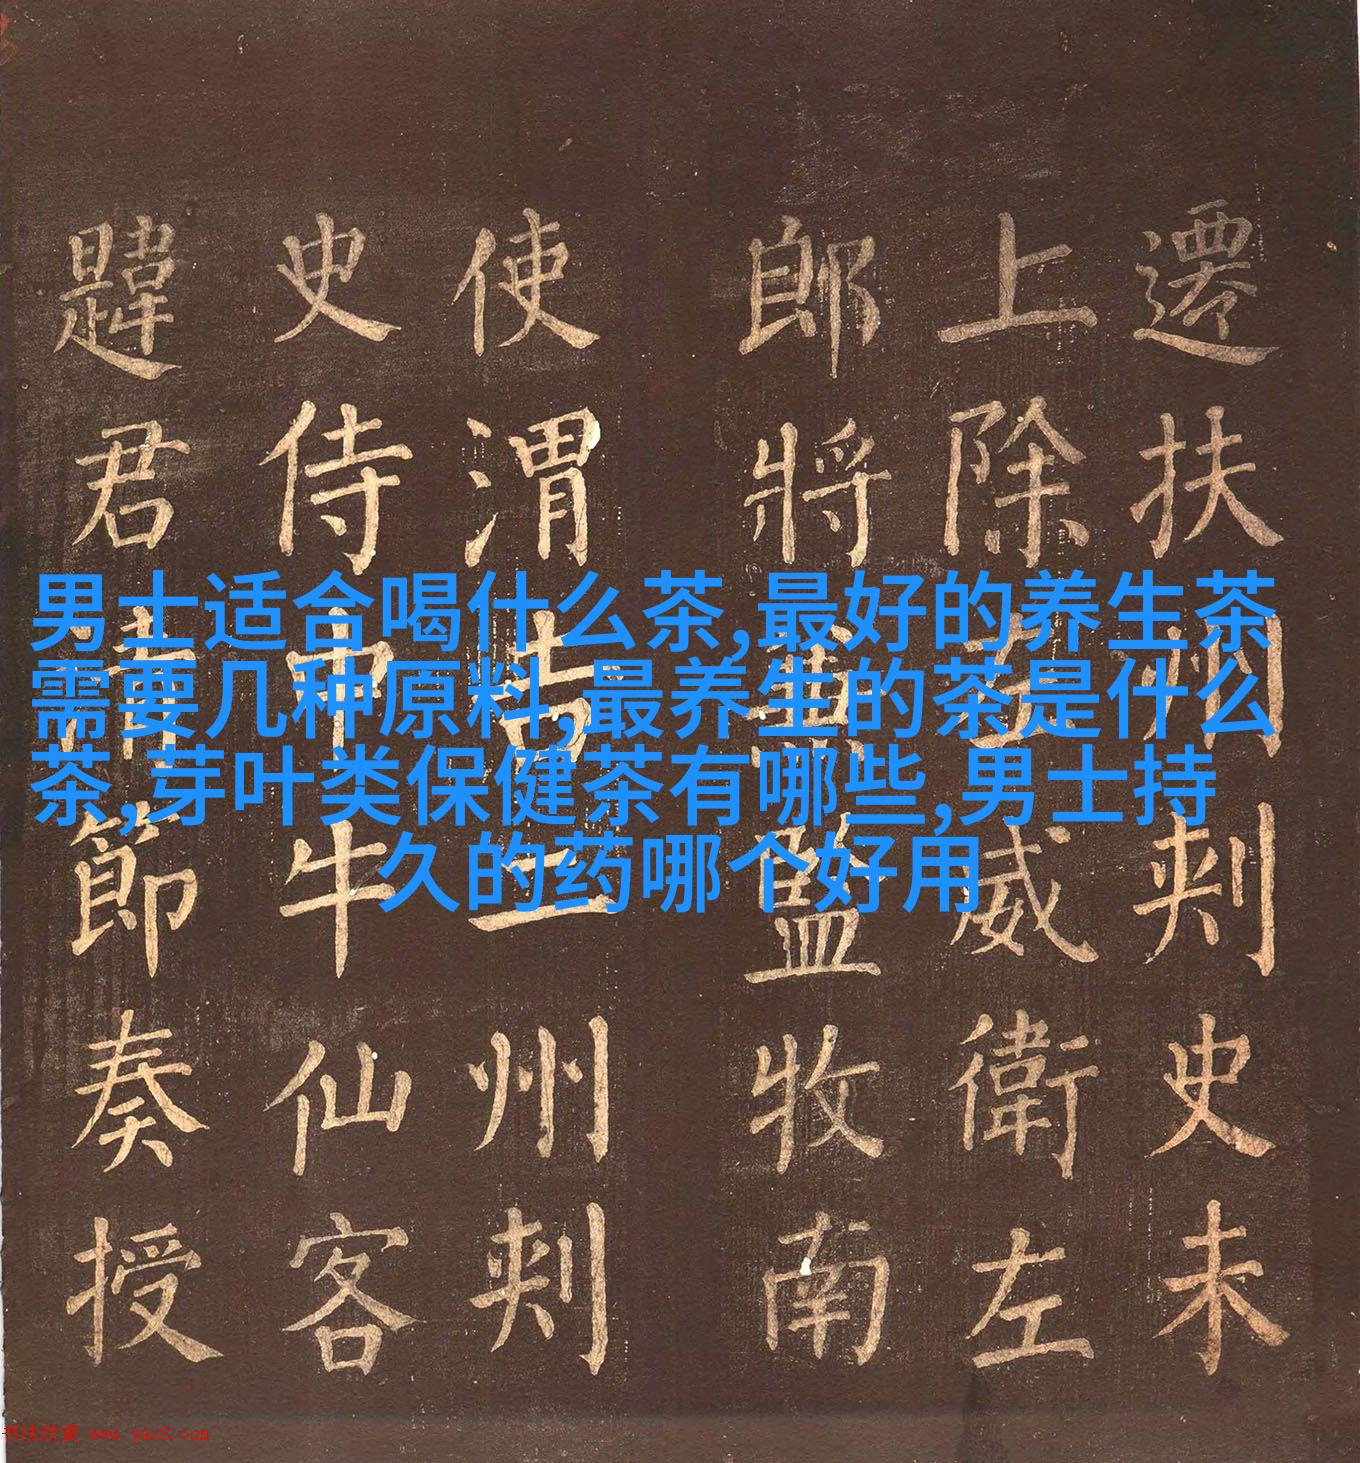 遷扶州刺史未
上除左威衛左
郎將兼監牧南
使渭吉州刺
史侍中牛仙客
韙君清節奏授
男士适合喝什么茶,最好的养生茶
需要几种原料,最养生的茶是什么
茶,芽叶类保健茶有哪些,男士持
久的药哪个好用
书法欣赏 www.yac8.com